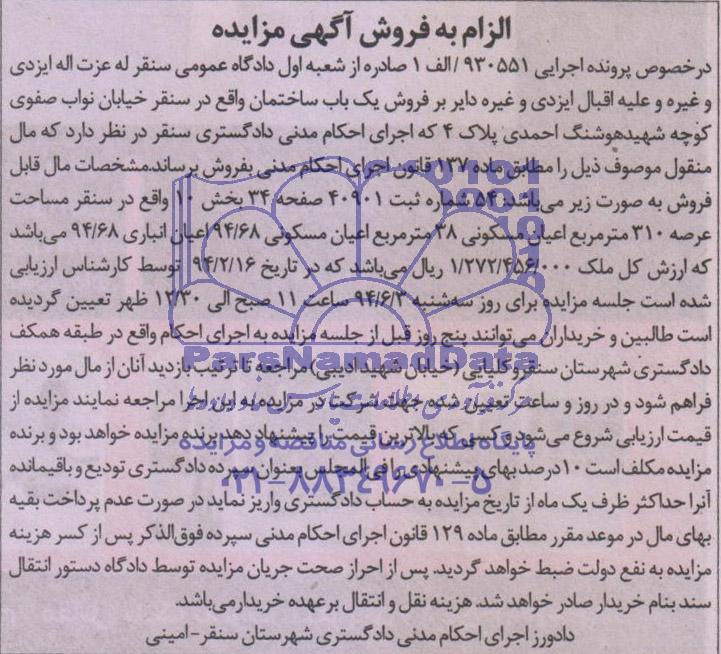 الزام به فروش آگهی مزایده
درخصوص پرونده اجرایی ۹۳۰۵۵۱ /الف ۱ صادره از شعبه اول دادگاه عمومی سنقر له عزت اله ایزدی
و غیره و علیه اقبال ایزدی و غیره دایر بر فروش یک باب ساختمان واقع در سنقر خیابان نواب صفوی
کوچه شهیدهوشنگ احمدی پلاک ۴ که اجرای احکام مدنی دادگستری سنقر در نظر دارد که مال
منقول موصوف ذیل را مطابق ماده ۱۳۷ قانون اجرای احکام مدنی بفروش برساند.مشخصات مال قابل
فروش به صورت زیر می‌باشد: ۵۴ شماره ثبت ۴۰۹۰۱ صفحه ۳۴ بخش ۱۰ واقع در سنقر مساحت
عرصه ۳۱۰ مترمربع اعیان مسکونی ۳۸ مترمربع اعیان مسکونی ۹۴/۶۸ اعیان انباری ۹۴/۶۸ می‌باشد
که ارزش کل ملک ۱/۲۷۲/۴۵۶/۰۰۰ ریال می‌باشد که در تاریخ ۹۴/۲/۱۶ توسط کارشناس ارزیابی
شده است جلسه مزایده برای روز سه‌شنبه ۹۴/۶/۳ ساعت ۱۱ صبح الی ۱۲/۳۰ ظهر تعیین گردیده
است طالبین و خریداران می‌توانند پنج روز قبل از جلسه مزایده به اجرای احکام واقع در طبقه همکف
دادگستری شهرستان سنقروکلیایی (خیابان شهید ادیبی) مراجعه تا ترتیب بازدید آنان از مال مورد نظر
فراهم شود و در روز و ساعت تعیین شده جهت شرکت در مزایده به این اجرا مراجعه نمایند مزایده از
قیمت ارزیابی شروع می‌شود و کسی که بالاترین قیمت را پیشنهاد دهد برنده مزایده خواهد بود و برنده
مزایده مکلف است ۱۰ درصد بهای پیشنهادی را فی‌المجلس بعنوان سپرده دادگستری تودیع و باقیمانده
آنرا حداکثر ظرف یک ماه از تاریخ مزایده به حساب دادگستری واریز نماید در صورت عدم پرداخت بقیه
بهای مال در موعد مقرر مطابق ماده ۱۲۹ قانون اجرای احکام مدنی سپرده فوق‌الذکر پس از کسر هزینه
مزایده به نفع دولت ضبط خواهد گردید. پس از احراز صحت جریان مزایده توسط دادگاه دستور انتقال
سند بنام خریدار صادر خواهد شد. هزینه نقل و انتقال برعهده خریدار می‌باشد.
دادورز اجرای احکام مدنی دادگستری شهرستان سنقر-امینی
ParsNamadData
پایگاه اطلاع رسانی مناقصه و مزایده
۰۲۱-۸۸۳۴۹۶۷۰-۵